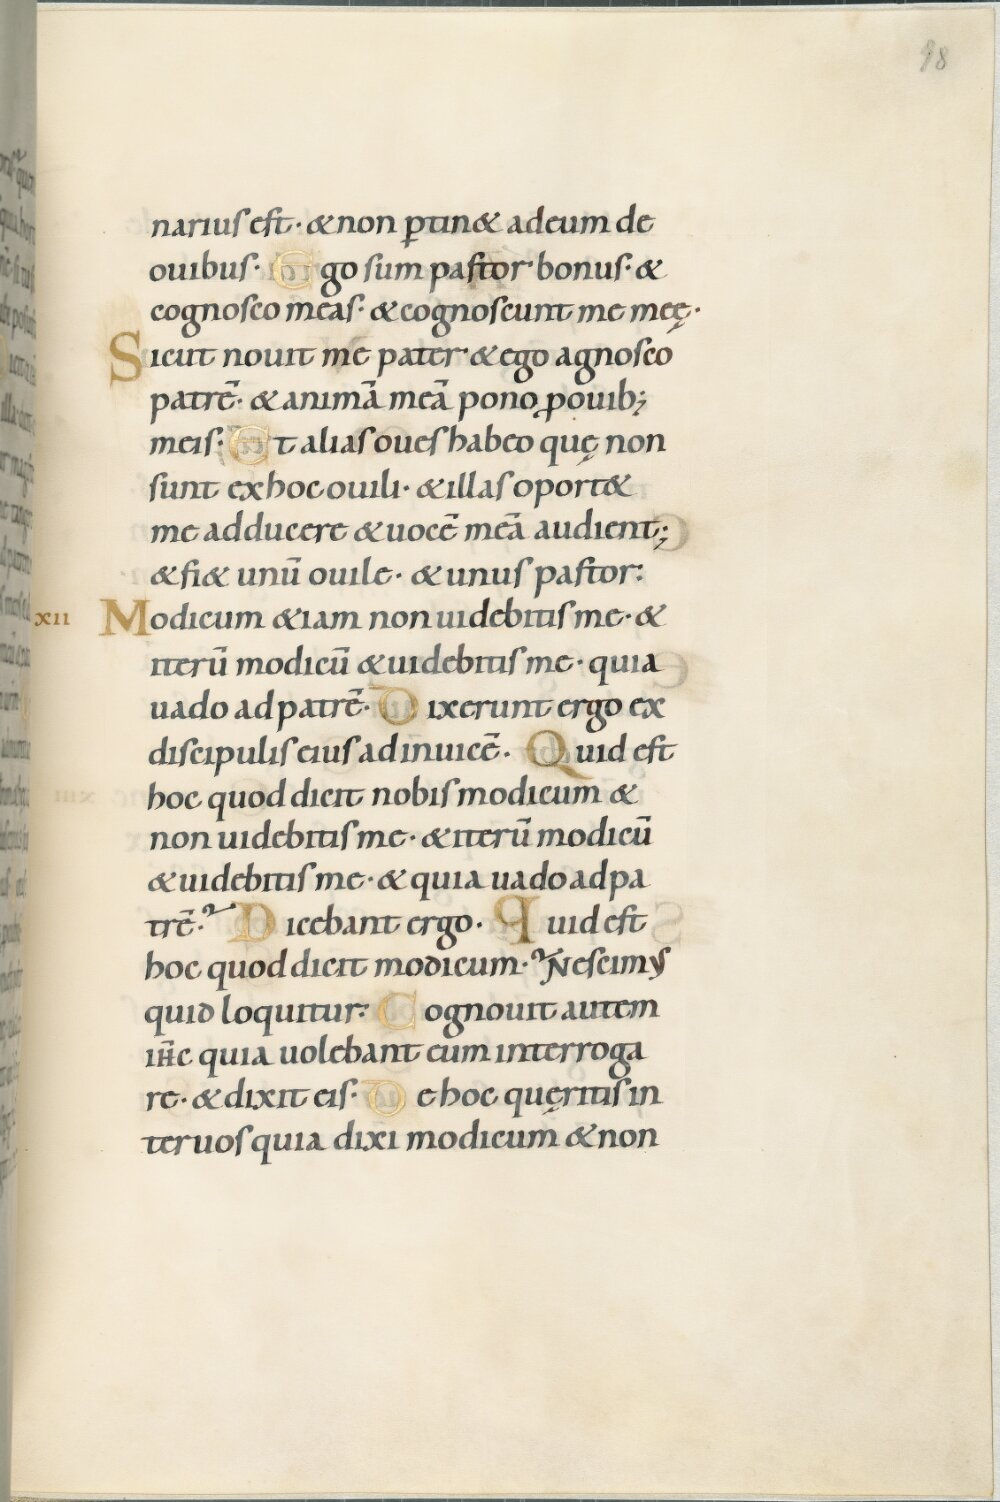 98
nariuſ eſt· & non ꝑtin& ad eum de
ouibus· Ego ſum paſtor bonus· &
cognoſco meaſ· & cognoſcunt me meę·
Sicut nouit me pater & ego agnoſco
patrē· & animā meā pono ꝓ ouib;
meiſ· Et aliaſ oueſ habeo quę non
ſunt ex hoc ouili· & illaſ oport&
me adducere & uocē meā audient;
& fi& unū ouile· & unuſ paſtor:
xii Modicum & iam non uidebitiſ me· &
iterū modicū & uidebitiſ me· quia
uado ad patrē· Dixerunt ergo ex
diſcipuliſ eiuſ ad inuicē· Quid eſt
hoc quod dicit nobiſ modicum &
non uidebitiſ me· & iterū modicū
& uidebitiſ me· & quia uado ad pa
trē·? Dicebant ergo· Quid eſt
hoc quod dicit modicum·? Neſcimuſ
quid loquitur: Cognouit autem
iħc quia uolebant eum interroga
re· & dixit eiſ· De hoc quęritiſ in
ter uoſ quia dixi modicum & non